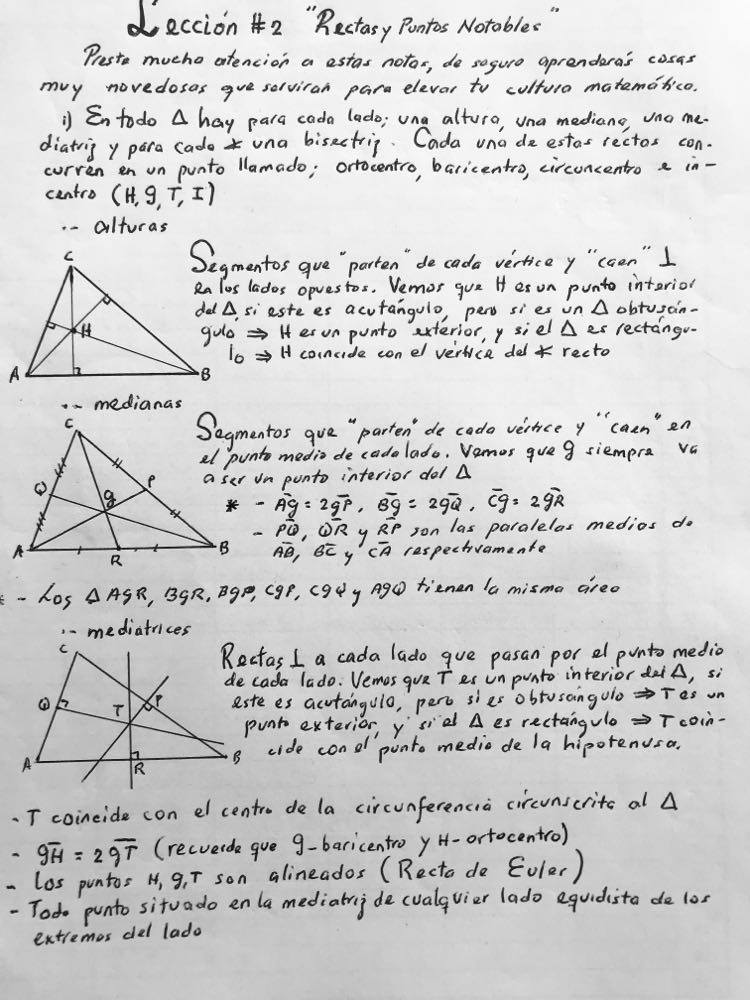 Lección #2 "Rectas y Puntos Notables"
Preste mucha atención a estas notas, de seguro aprenderás cosas
muy novedosas que servirán para elevar tu cultura matemática.
i) En todo Δ hay para cada lado; una altura, una mediana, una me-
diatriz y para cada ∢ una bisectriz. Cada una de estas rectas con-
curren en un punto llamado; ortocentro, baricentro, circuncentro e in-
centro (H, g, T, I)
·-- alturas
Segmentos que "parten" de cada vértice y "caen" ⊥
en los lados opuestos. Vemos que H es un punto interior
del Δ, si este es acutángulo, pero si es un Δ obtusán-
gulo ⇒ H es un punto exterior, y si el Δ es rectángu-
lo ⇒ H coincide con el vértice del ∢ recto
C
H
A
B
·-- medianas
Segmentos que "parten" de cada vértice y "caen" en
el punto medio de cada lado. Vemos que g siempre va
a ser un punto interior del Δ
* - A̅g̅ = 2g̅P̅, B̅g̅ = 2g̅Q̅, C̅g̅ = 2g̅R̅
- P̅Q̅, Q̅R̅ y R̅P̅ son las paralelas medias de
A̅B̅, B̅C̅ y C̅A̅ respectivamente
C
Q
P
g
A
R
B
* - Los Δ AgR, BgR, BgP, CgP, CgQ y AgQ tienen la misma área
·-- mediatrices
Rectas ⊥ a cada lado que pasan por el punto medio
de cada lado. Vemos que T es un punto interior del Δ, si
este es acutángulo, pero si es obtusángulo ⇒ T es un
punto exterior, y si el Δ es rectángulo ⇒ T coin-
cide con el punto medio de la hipotenusa.
C
Q
T
P
A
R
B
- T coincide con el centro de la circunferencia circunscrita al Δ
- g̅H̅ = 2g̅T̅ (recuerde que g-baricentro y H-ortocentro)
- Los puntos H, g, T son alineados (Recta de Euler)
- Todo punto situado en la mediatriz de cualquier lado equidista de los
extremos del lado